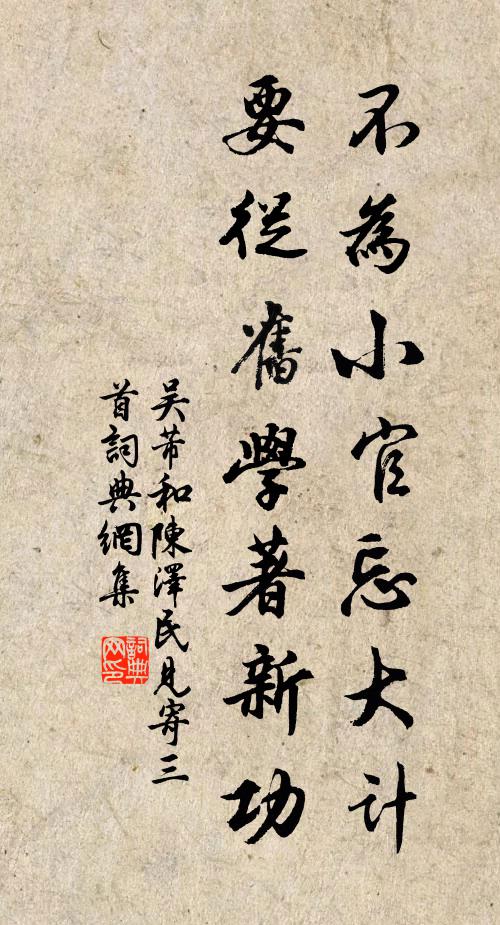 不為小官忘大計
要從舊學著新功
吴芾和陳澤民見寄三
首詞典網集
詞典
网印